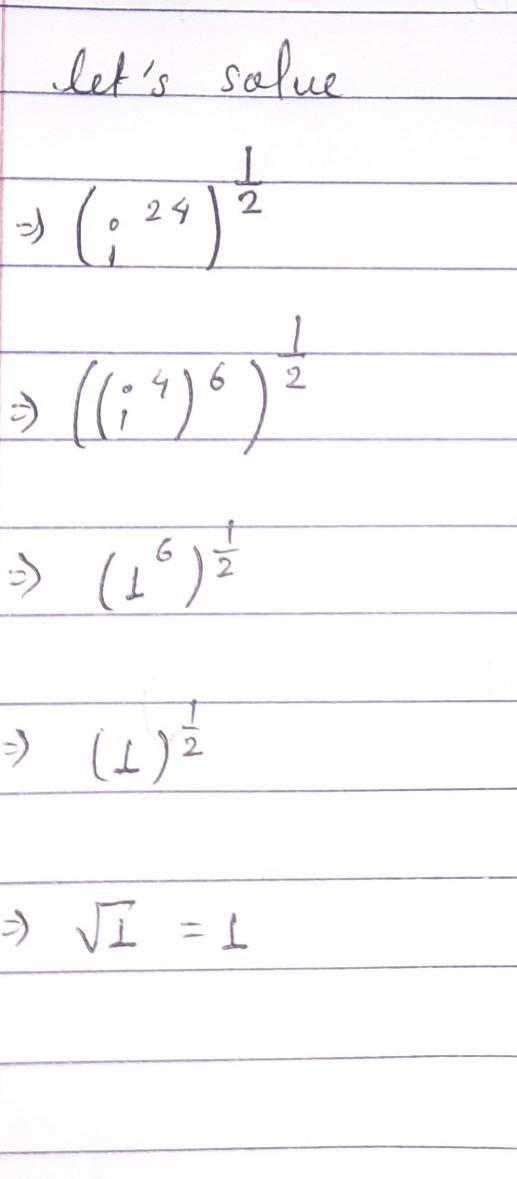 let's solve
⇒ (i^24)^1/2
⇒ ((i^4)^6)^1/2
⇒ (1^6)^1/2
⇒ (1)^1/2
⇒ √1 = 1